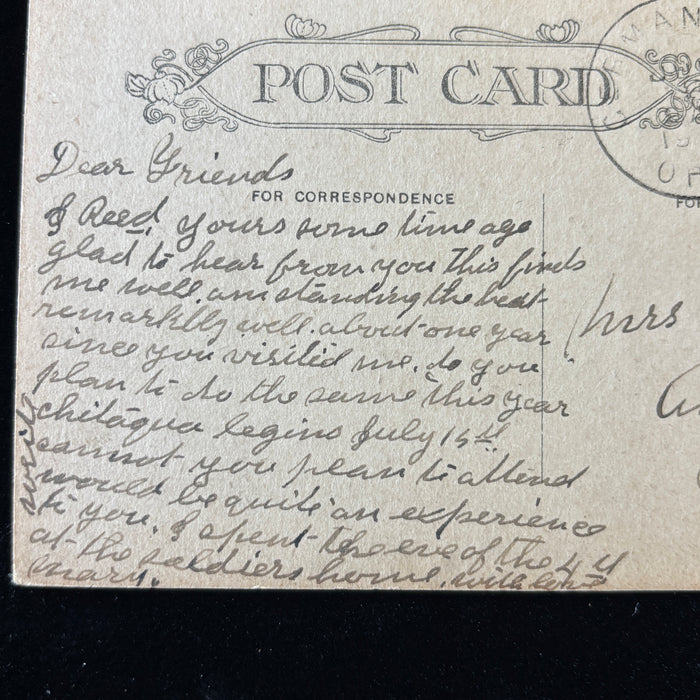 POST CARD
MAN
19
OF
Dear Friends
FOR CORRESPONDENCE
FO
I Recd, yours some time ago
glad to hear from you this finds
me well. am standing the heat
remarkblly well. about one year
since you visitid me. do you
plan to do the same this year
chitaqua begins July 15th
cannot you plan to attend
would be quite an experience
to you. I spent the eve of the 4th
at the soldiers home, with
mary.
Mrs